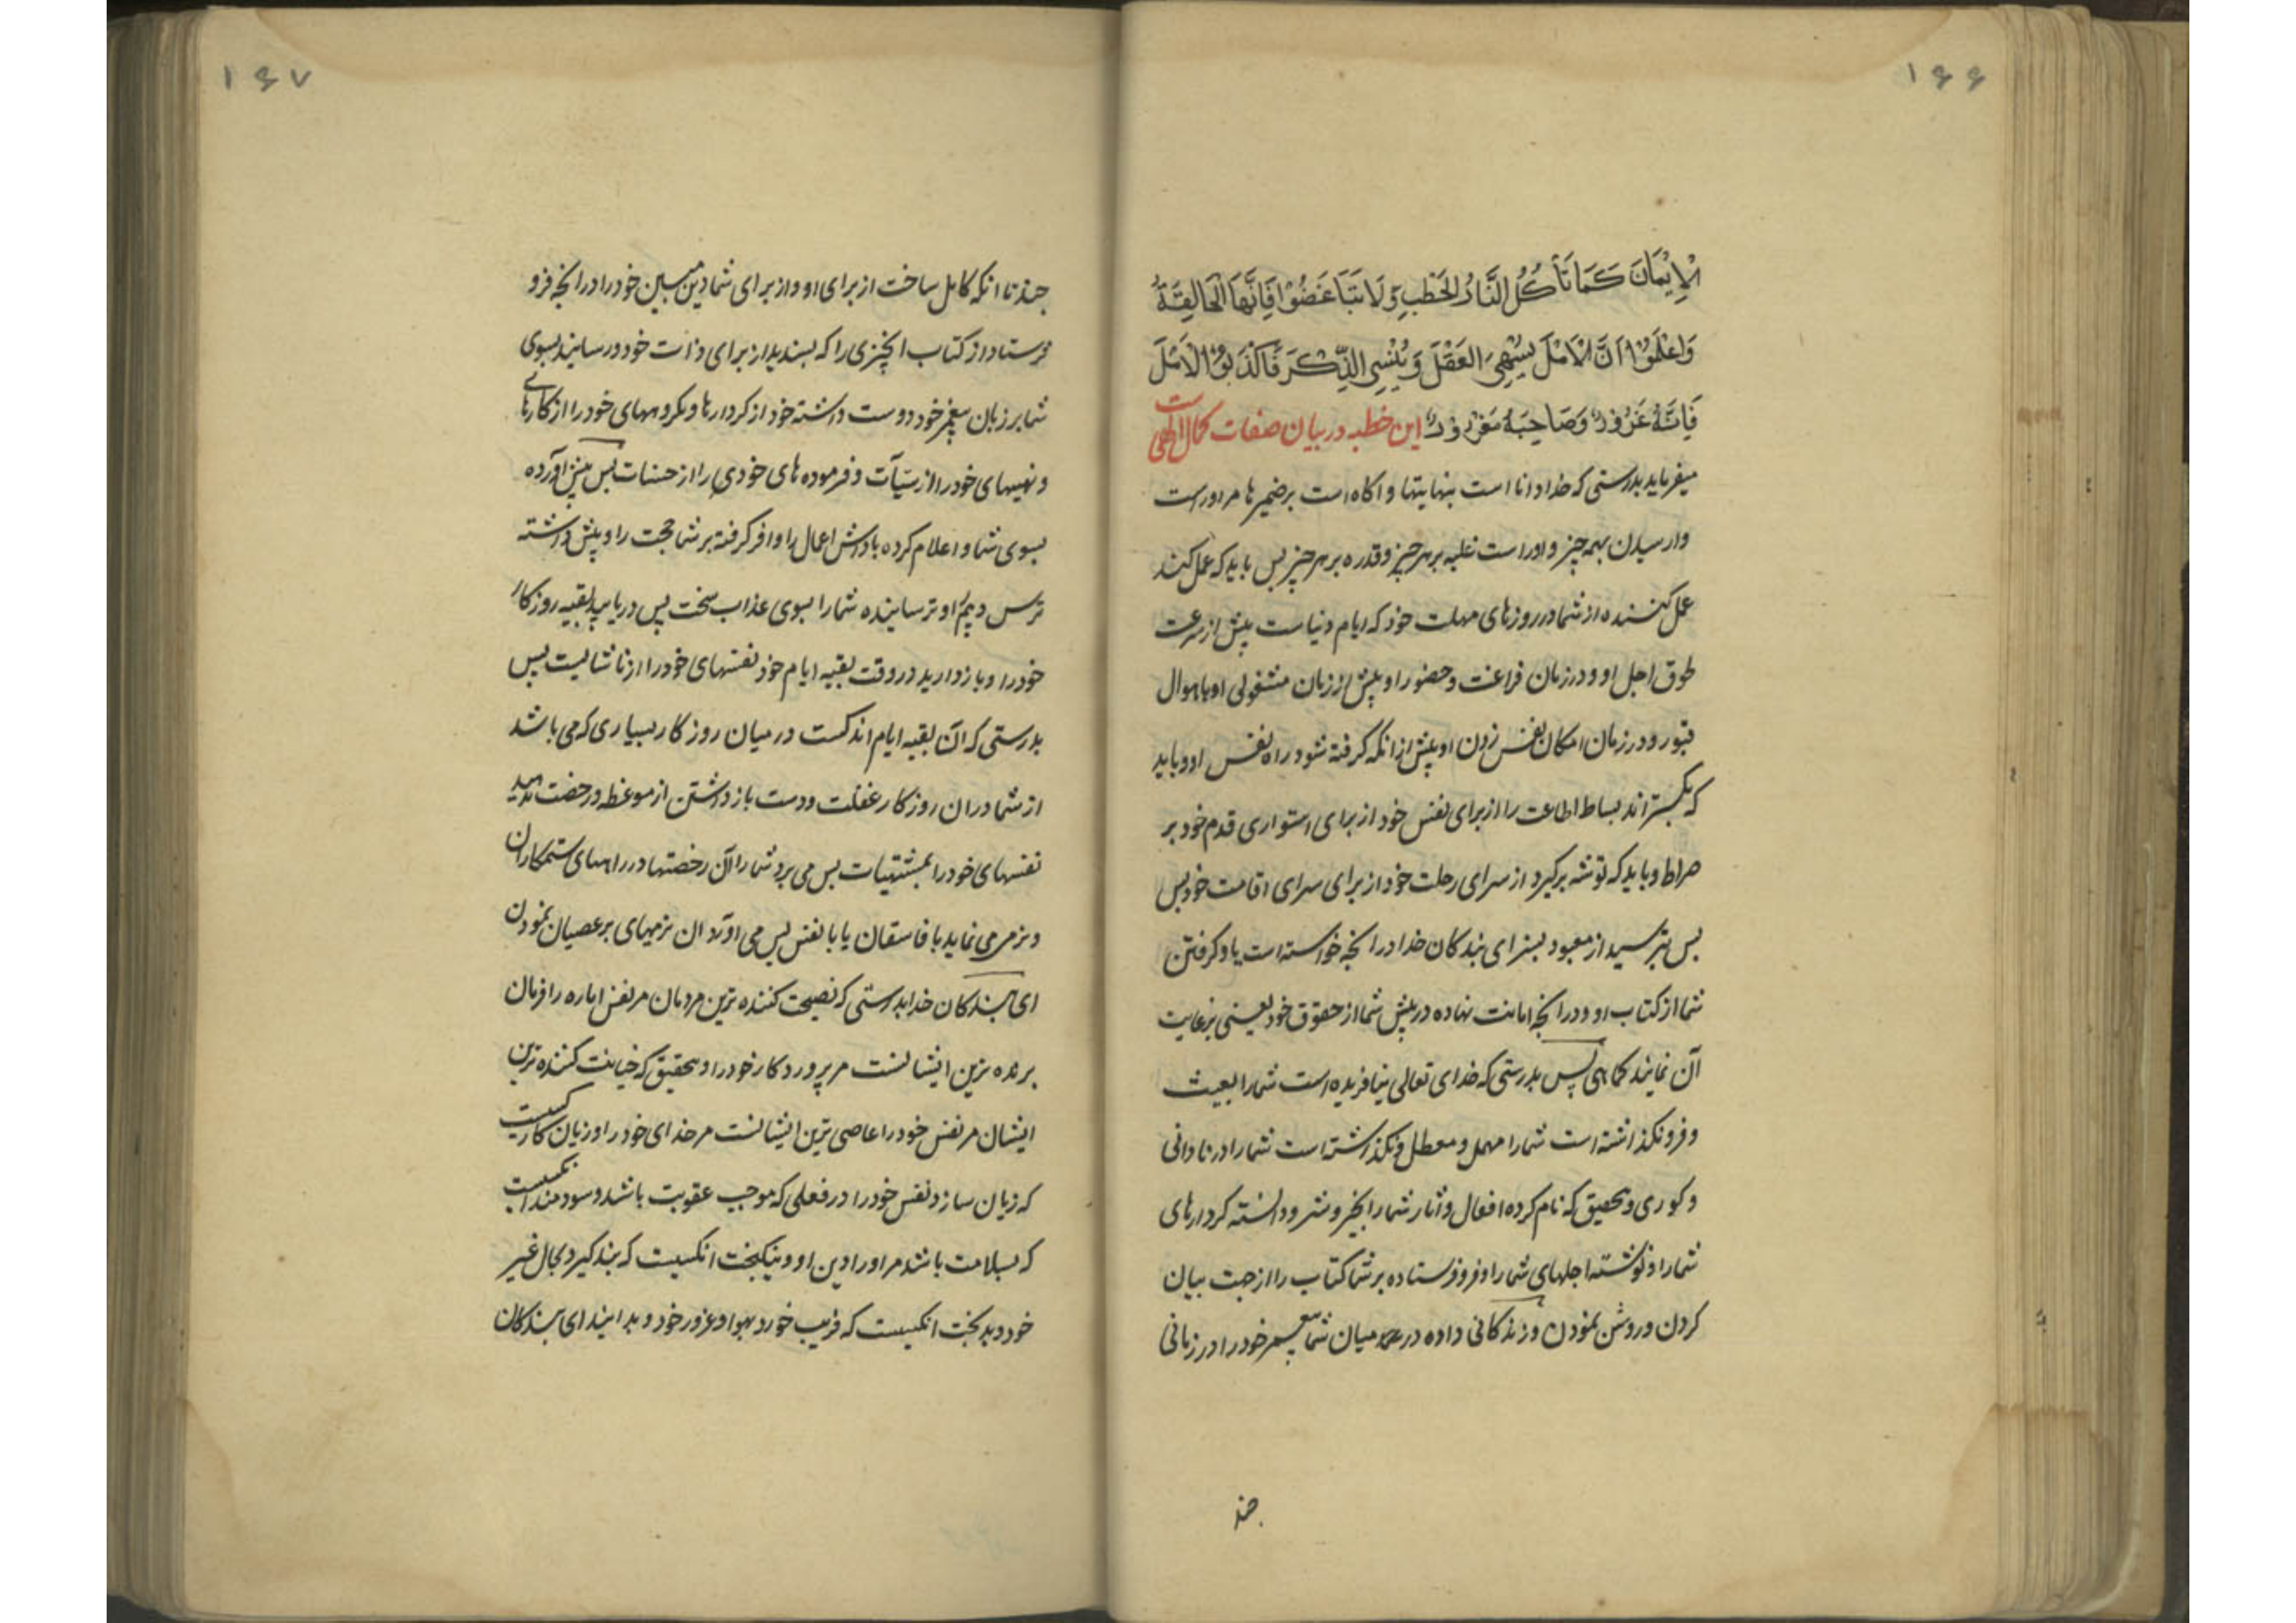 ۱۶۶
الْاِیْمَانَ کَمَا تَأْکُلُ النَّارُ الْحَطَبَ وَلَا تَبَاغَضُوْا فَاِنَّهَا الْحَالِقَةُ
وَاعْلَمُوْا اَنَّ الْاَمَلَ یُسْهِیَ الْعَقْلَ وَ یُنْسِی الذِّکْرَ فَاَکْذِبُوْا الْاَمَلَ
فَاِنَّهُ غَرُوْرٌ وَصَاحِبَهُ مَغْرُوْرٌ این خطبه در بیان صفات کمال الهی است
میفرماید بدرستی که خدا دانا است بنهایتها و اکاه است برضمیرها مر اوراست
وارسیدن بهمه چیز و اوراست غلبه بر هر چیز و قدره بر هر چیز پس باید که عمل کند
عمل کننده از شما در روزهای مهلت خود که ایام دنیاست پیش از سرعت
طوق اجل او و در زمان فراغت و حضور او پیش از زمان مشغولی او باهوال
قبور و در زمان امکان نفس زدن او پیش از انکه کرفته شود راه نفس او و باید
که بکستراند بساط اطاعت را از برای نفس خود از برای استواری قدم خود بر
صراط و باید که توشه برکیرد از سرای رحلت خود از برای سرای اقامت خود پس
پس بترسید از معبود بسزا ای بندکان خدا در انچه خواسته است یاد کرفتن
شما از کتاب او و در انچه امانت نهاده در پیش شما از حقوق خود یعنی برعایت
آن نمایند کماهی پس بدرستی که خدای تعالی نیافریده است شما را بعبث
و فرو نکذاشته است شما را مهمل و معطل و نکذاشته است شما را در نادانی
و کوری و بتحقیق که نام کرده افعال و آثار شما را بخیر و شر و دانسته کردارهای
شما را و نوشته اجلهای شما را و فرو فرستاده بر شما کتاب را از جهت بیان
کردن و روشن نمودن و زندکانی داده در عمد میان شما پیغمبر خود را در زمانی
چند
۱۶۷
چند تا انکه کامل ساخت از برای او و از برای شما دین مبین خود را در انچه فرو
فرستاد از کتاب انچیزی را که پسندید از برای ذات خود و رسانید بسوی
شما بر زبان پیغمبر خود دوست داشته خود از کردارها و مکروههای خود را از کارها
و نهیهای خود را از سیّآت و فرموده های خودی را از حسنات پس پیش آورده
بسوی شما و اعلام کرده پاداش اعمال را و فرا کرفته بر شما حجت را و پیش داشته
ترس و بیم او ترساینده شما را بسوی عذاب سخت پس دریابید بقیه روزکار
خود را و بازدارید در وقت بقیه ایام خود نفسهای خود را از ناشایست پس
بدرستی که آن بقیه ایام اندکست در میان روزکار بسیاری که می باشد
از شما در ان روزکار غفلت و دست بازداشتن از موعظه و رخصت مدهید
نفسهای خود را بمشتهیات پس می برد شما را آن رخصتها در راههای ستمکاران
و نرمی می نماید با فاسقان یا با نفس پس می آورد ان نرمیهای بر عصیان نمودن
ای بندکان خدا بدرستی که نصیحت کننده ترین مردمان مر نفس اماره را فرمان
برنده ترین ایشانست مر پروردکار خود را و بتحقیق که خیانت کننده ترین
ایشان مر نفس خود را عاصی ترین ایشانست مر خدای خود را و زیان کار کسیست
که زیان سازد نفس خود را در فعلی که موجب عقوبت باشد و سودمند انکسیست
که بسلامت باشد مر او را دین او و نیکبخت انکسیست که پند کیرد بحال غیر
خود و بدبخت انکسیست که فریب خورد بهوا و غرور خود و بدانید ای بندکان